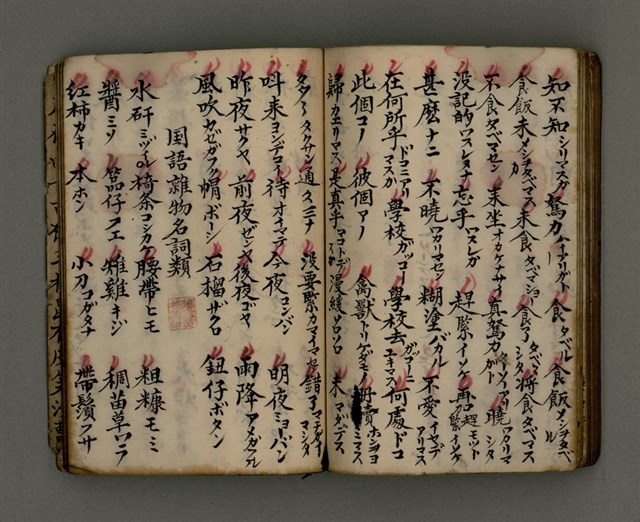 知不知 シリマスカ 駑力 食 タベル 食飯 メシヲタベル
食飯未 メシタベマスカ 未食 食了 タベマシタ 將食 タベマス
不食 タベマセン 来坐 オカケナサイ 真駑力 曉 ワカリマシタ
没記的 ワスレマシタ 忘乎 ワスレタカ 趕緊 イソグ 再趕緊 モットイソグ
甚麼 ナニ 不曉 ワカリマセン 糊塗 バカル 不愛 イヤデアリマス
在何所乎 ドコニアリマスカ 學校 ガッコー 學校去 ガッコーニユキマス 何處 ドコ
此個 コノ 彼個 アノ 禽獸 トリケダモノ 冊賣 ホンヲヨミマス
歸 カエリマス 是真乎 マコトデ 漫緩 ソロソロ 未 マダデス
タクサン 通 ミナ 没要緊 カマイマセン 錯了 マチガイマシタ
叫来 ヨンデコイ 待 オマチ 今夜 コンバン 明夜 ミョーバン
昨夜 サクヤ 前夜 ゼンヤ 後夜 ゴヤ 雨降 アメガフル
風吹 カゼガフク 帽 ボーシ 石榴 ザクロ 鈕仔 ボタン
国語雜物名詞類
水矸 椅条 コシカケ 腰帶 ヒモ 粗糠 モミ
醬 ミソ 品仔 フエ 雉雞 キジ 稠苗草 ワラ
紅柿 カキ 本 ホン 小刀 コガタナ 帶鬚 フサ